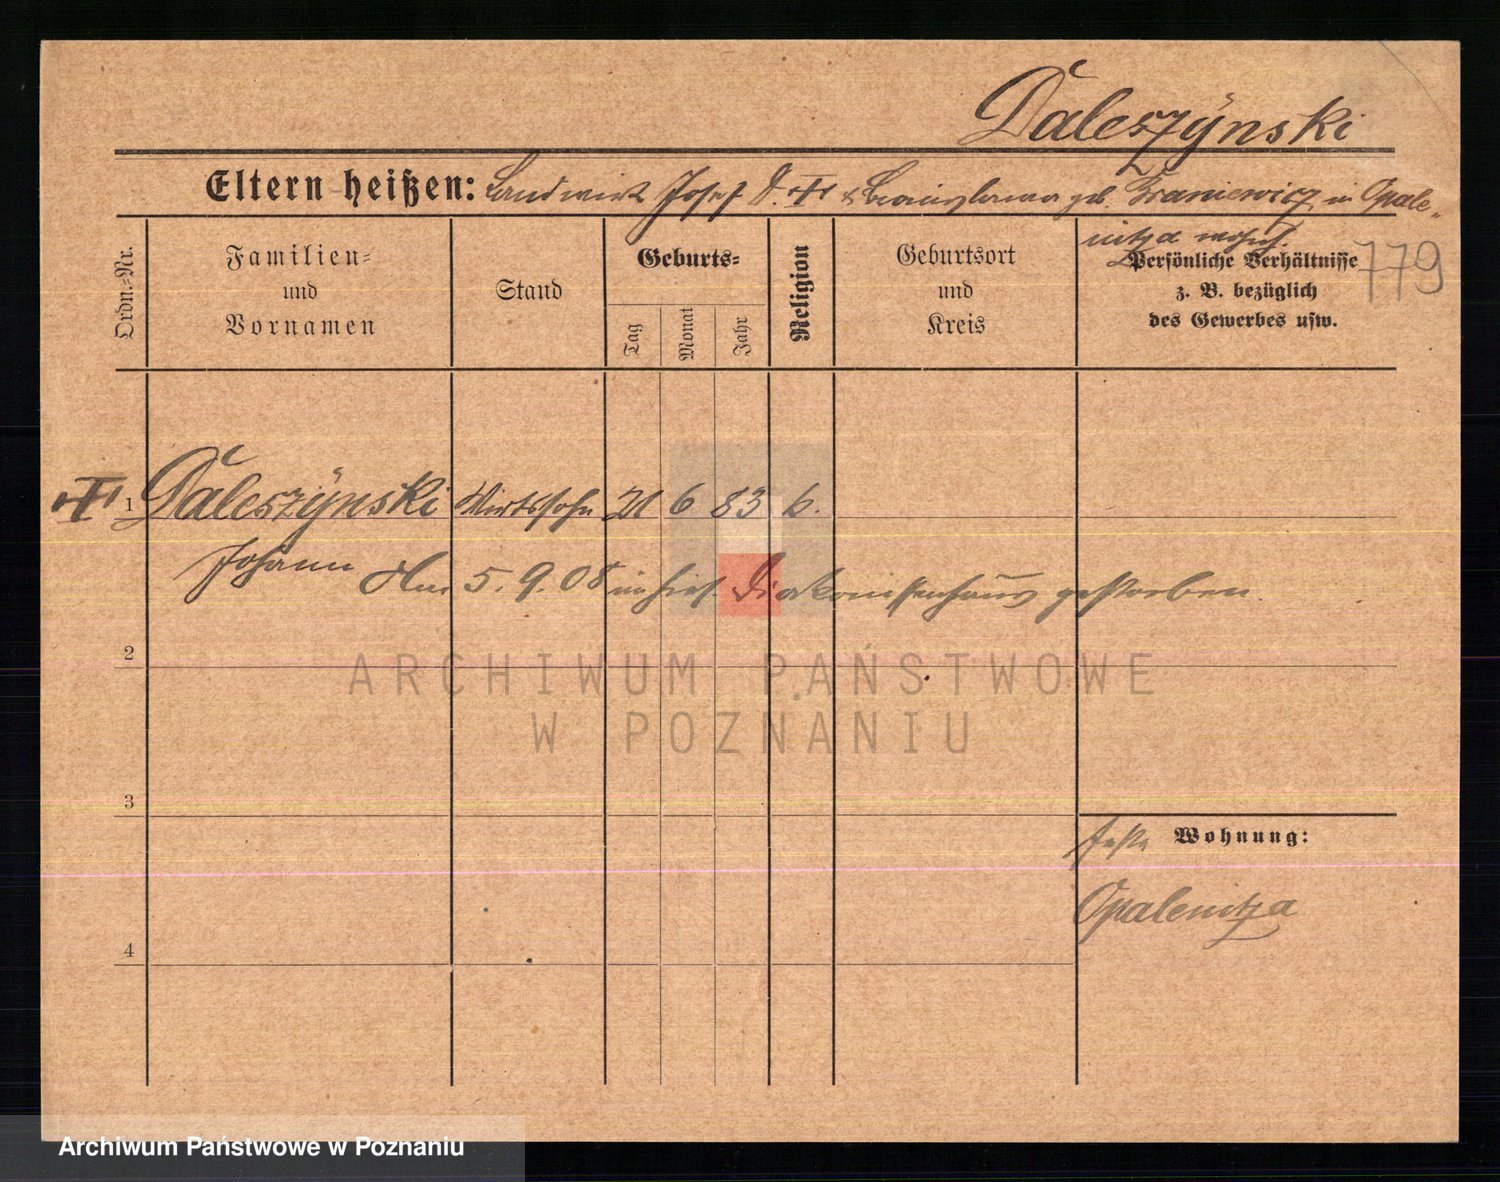 Daleszÿnski
Eltern heißen: Landwirt Josef D. geb. Graniewicz, in Opale-
nitza wohnh.
779
Ordn.-Nr.
Familien-
und
Vornamen
Stand
Geburts-
Tag
Monat
Jahr
Religion
Geburtsort
und
Kreis
Persönliche Verhältnisse
z. B. bezüglich
des Gewerbes usw.
1 Daleszÿnski Wirtssohn 21 6 83 k.
Johann Am 5.9.08 im hies. Diakonissenhaus gestorben.
2
ARCHIWUM PAŃSTWOWE
W POZNANIU
3
Wohnung:
Opalenitza
4
Archiwum Państwowe w Poznaniu